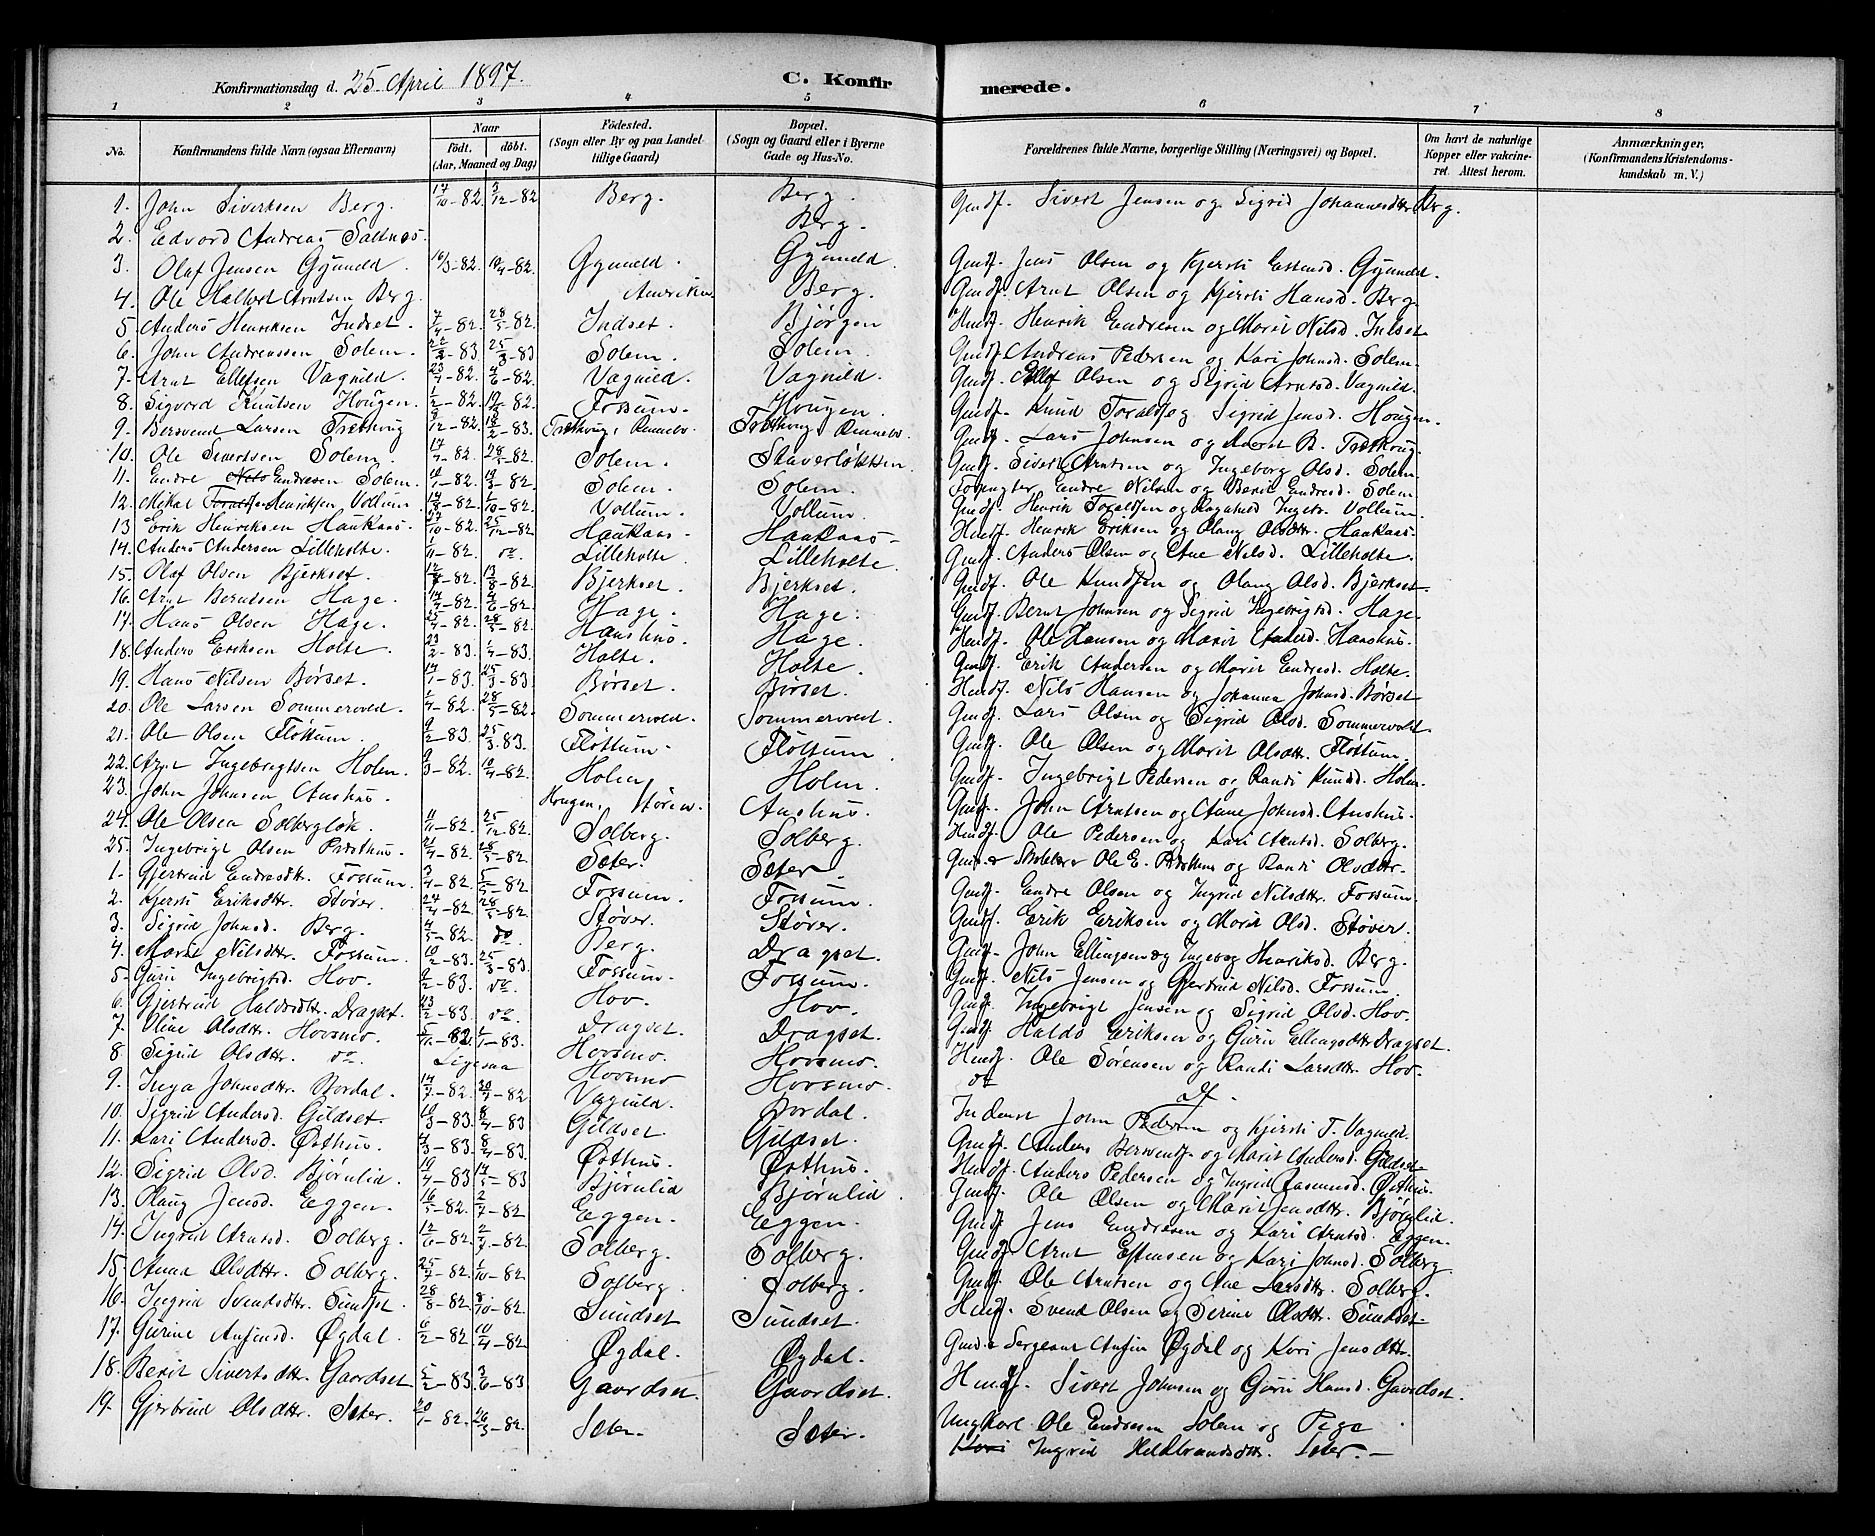 Konfirmationsdag d. 25 April 1897.
C. Konfirmerede.
1 2 3 4 5 6 7 8
No. Konfirmandens fulde Navn (ogsaa Efternavn) Naar födt. döbt. (Aar, Maaned og Dag) Födested. (Sogn eller By og paa Landet tillige Gaard) Bopæl. (Sogn og Gaard eller i Byerne Gade og Hus-No. Forældrenes fulde Navne, borgerlige Stilling (Næringsvei) og Bopæl. Om havt de naturlige Kopper eller vakcineret. Attest herom. Anmærkninger. (Konfirmandens Kristendomskundskab m. V.)
1. John Sivertsen Berg. 17/10-82 3/12-82 Berg. Berg. Gmdf. Sivert Jensen og Sigrid Johannesdtr Berg.
2. Edvard Andreas Saltnes. Berg.
3. Olaf Jensen Gynneld. 16/3-82. 10/4-82. Gynneld. Gynneld. Gmdf. Jens Olsen og Kjersti Estensd. Gynneld.
4. Ole Halbert Arntsen Berg. Amerika. Berg. Gmdf. Arnt Olsen og Kjersti Hansd. Berg.
5. Anders Henriksen Indset. 7/4-82. 28/5-82. Indset. Bjørgen Husf. Henrik Endresen og Marit Nilsd. Indset
6. John Andreassen Solem. 83. 25/3-83 Solem. Solem. Gmdf. Andreas Pedersen og Kari Johnsd. Solem.
7. Arnt Ellefsen Vagnild. 23/4-82. 4/6-82. Vagnild. Vagnild. Gmdf. Ellef Olsen og Sigrid Arntsd. Vagnild.
8. Sigvard Knutsen Hougen. 1/2-82. 82. Fossum. Hougen. Gmdf. Knud Toraldf og Sigrid Jensd. Hougen.
9. Bersvend Larsen Træthaug 12-82. 18/2-83. Træthaug, Rennebo. Træthaug, Rennebo. Gmdf. Lars Johnsen og Marit B. Træthaug.
10. Ole Sivertsen Solem. 17/4-82. 28/5-82. Solem. Staverløkken. Gmdf. Sivert Arntsen og Ingeborg Olsd. Solem.
11. Endre Nils Endresen Solem. 82. 82. Solem. Solem. Forpagter Endre Nilsen og Berit Endresd. Solem
12. Mikal Toralf Henriksen Vollum. 14/8-82. 1/10-82. Vollum. Vollum. Gmdf. Henrik Toraldsen og Ragnhild Ingebr. Vollum.
13. Erik Henriksen Haukaas. 27/10-82. 25/12-82 Haukaas. Haukaas. Husf. Henrik Eriksen og Olaug Olsdtr. Haukaas.
14. Anders Andersen Lilleholte. 1/11-82. do. Lilleholte. Lilleholte. Gmdf. Anders Olsen og Ane Nilsd. Lilleholte.
15. Olaf Olsen Bjerkset. 82. 13/8-82. Bjerkset. Bjerkset. Gmdf. Ole Knudsen og Olaug Olsd. Bjerkset
16. Arnt Berntsen Hage. 14/4-82. 4/6-82. Hage. Hage. Gmdf. Bernt Johnsen og Sigrid Ingebrigtsd. Hage.
17. Hans Olsen Hage. 25/4-82. 28/5-82. Hanshus. Hage. Husf. Ole Hansen og Marit Andersd. Hanshus.
18. Anders Eriksen Holte. 23/2-83. 83. Holte. Holte. Gmdf. Erik Andersen og Marit Endresd. Holte.
19. Hans Nilsen Børset. 14/1-83. 25/3-83 Børset. Børset. Husf. Nils Hansen og Johanna Johnsd. Børset
20. Ole Larsen Sommervold. 1/4-82. 28/5-82. Sommervold. Sommervold. Gmdf. Lars Olsen og Sigrid Olsd. Sommervold
21. Ole Olsen Fløttum. 9/2-83. 25/3.83. Fløttum. Fløttum. Gmdf. Ole Olsen og Marit Olsdtr. Fløttum.
22. Arnt Ingebrigtsen Holm. 9/3-82. 10/4-82. Holm. Holm. Gmdf. Ingebrigt Pedersen og Randi Knudsd. Holm.
23. John Johnsen Aushus. Hougen, Støren. Aushus. Gmdf. John Arntsen og Ane Johnsd. Aushus.
24. Ole Olsen Solbergløk. 11/11-82. 25/12-82. Solberg. Solberg. Husf. Ole Pedersen og Kari Arntsd. Solberg.
25. Ingebrigt Olsen Præsthus. 21/4-82. 28/5-82. Sæter. Sæter. Gmd. & Skolelærer Ole E. Præsthus og Randi Olsdtr.
1. Gjertrud Endresdtr. Fossum. 3/4-82. 5-82. Fossum. Fossum. Gmdf. Endre Olsen og Ingrid Nilsdtr. Fossum.
2. Kjersti Eriksdtr. Støver. 24/4-82. 28/5-82. Støver. Støver. Gmdf. Erik Eriksen og Marit Olsd. Støver.
3. Sigrid Johnsd. Berg. 4/5-82. do. Berg. Dragset. Gmdf. John Ellingsen og Ingebog Henriksd. Berg.
4. Marit Nilsdtr. Fossum. 10/2-83. 25/3-83. Fossum. Fossum. Gmdf. Nils Jensen og Gjertrud Nilsd. Fossum.
5. Guru Ingebrigtsd. Hov. 9/2-83. do. Hov. Hov. Gmdf. Ingebrigt Jensen og Sigrid Olsd. Hov.
6. Gjertrud Haldosdtr. Dragset. 23/2-83. do. Dragset. Dragset. Gmdf. Haldo Eriksen og Guru Ellingsdtr. Dragset.
7. Oline Olsdtr. Hovsmo. 5/11-82. 1/1-83. Hovsmo. Hovsmo. Husf. Ole Sørensen og Randi Larsdtr. Hov.
8. Sigrid Olsdtr. do. Ligesaa Hovsmo Hovsmo. do do.
9. Inga Johnsdtr. Bordal. 14/7-82. 20/-82. Vagnild. Bordal. Inderst John Pedersen og Kjersti T. Vagnild.
10. Sigrid Andersd. Gildset. 10/3-83. 8/4-83. Gildset. Gildset. Gmdf. Anders Bersvends. og Marit Andersd. Gildset
11. Kari Andersd. Østhus. 4/3-83. 8/4-83. Østhus. Østhus. Husf. Anders Pedersen og Ingrid Rasmusd. Østhus.
12. Sigrid Olsd. Bjørnlid. 83 14/5-83 Bjørnlid Bjørnlid. Gmdf. Ole Olsen og Marit Jensdtr. Bjørnlid.
13. Olaug Jensd. Eggen. 16/5-82. 2/7-82. Eggen. Eggen. Gmdf. Jens Endresen og Kari Arntsd. Eggen.
14. Ingrid Arntsd. Solberg. 12/6-82. 2/7-82. Solberg. Solberg. Gmdf. Arnt Estensen og Kari Johnsd. Solberg.
15. Anna Olsdtr. Solberg. 25/7-82. 1/10-82. Solberg. Solberg. Gmdf. Ole Arntsen og Ane Larsdtr. Solberg.
16. Ingrid Svendsdtr. Sundset. 28/8-82. 8/10-82. Sundset Sundset. Husf. Svend Olsen og Serine Olsdtr. Sundset
17. Gurine Anfinsd. Øgdal. 6/2-82. 10/4-82. Øgdal. Øgdal. Gmd. & Sergeant Anfin Øgdal og Kari Jensdtr.
18. Berit Sivertsdtr. Gaardset. 5/2-83. 3/6-83. Gaardset. Gaardset. Husf. Sivert Johnsen og Guru Hansd. Gaardset.
19. Gjertrud Olsdtr. Sæter. 20/1-82. 26/3-82. Sæter. Sæter. Ungkarl Ole Endresen Solem og Pige
Kari Ingrid Hildbrandsdtr. Sæter.-